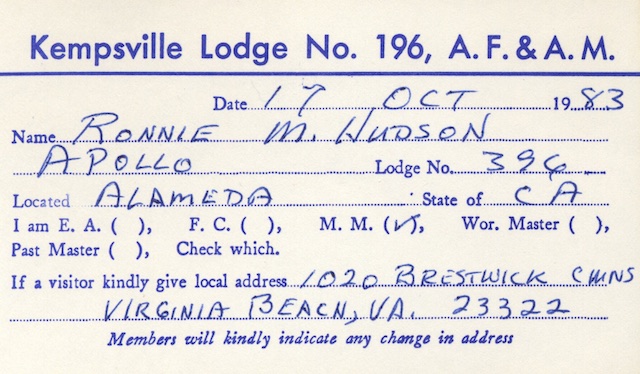 Kempsville Lodge No. 196, A. F. & A. M.
Date 17 OCT 1983
Name RONNIE M. HUDSON
APOLLO Lodge No. 396
Located ALAMEDA State of CA
I am E. A. ( ), F. C. ( ), M. M. (✓), Wor. Master ( ),
Past Master ( ), Check which.
If a visitor kindly give local address 1020 BRESTWICK
VIRGINIA BEACH, VA. 23322
Members will kindly indicate any change in address